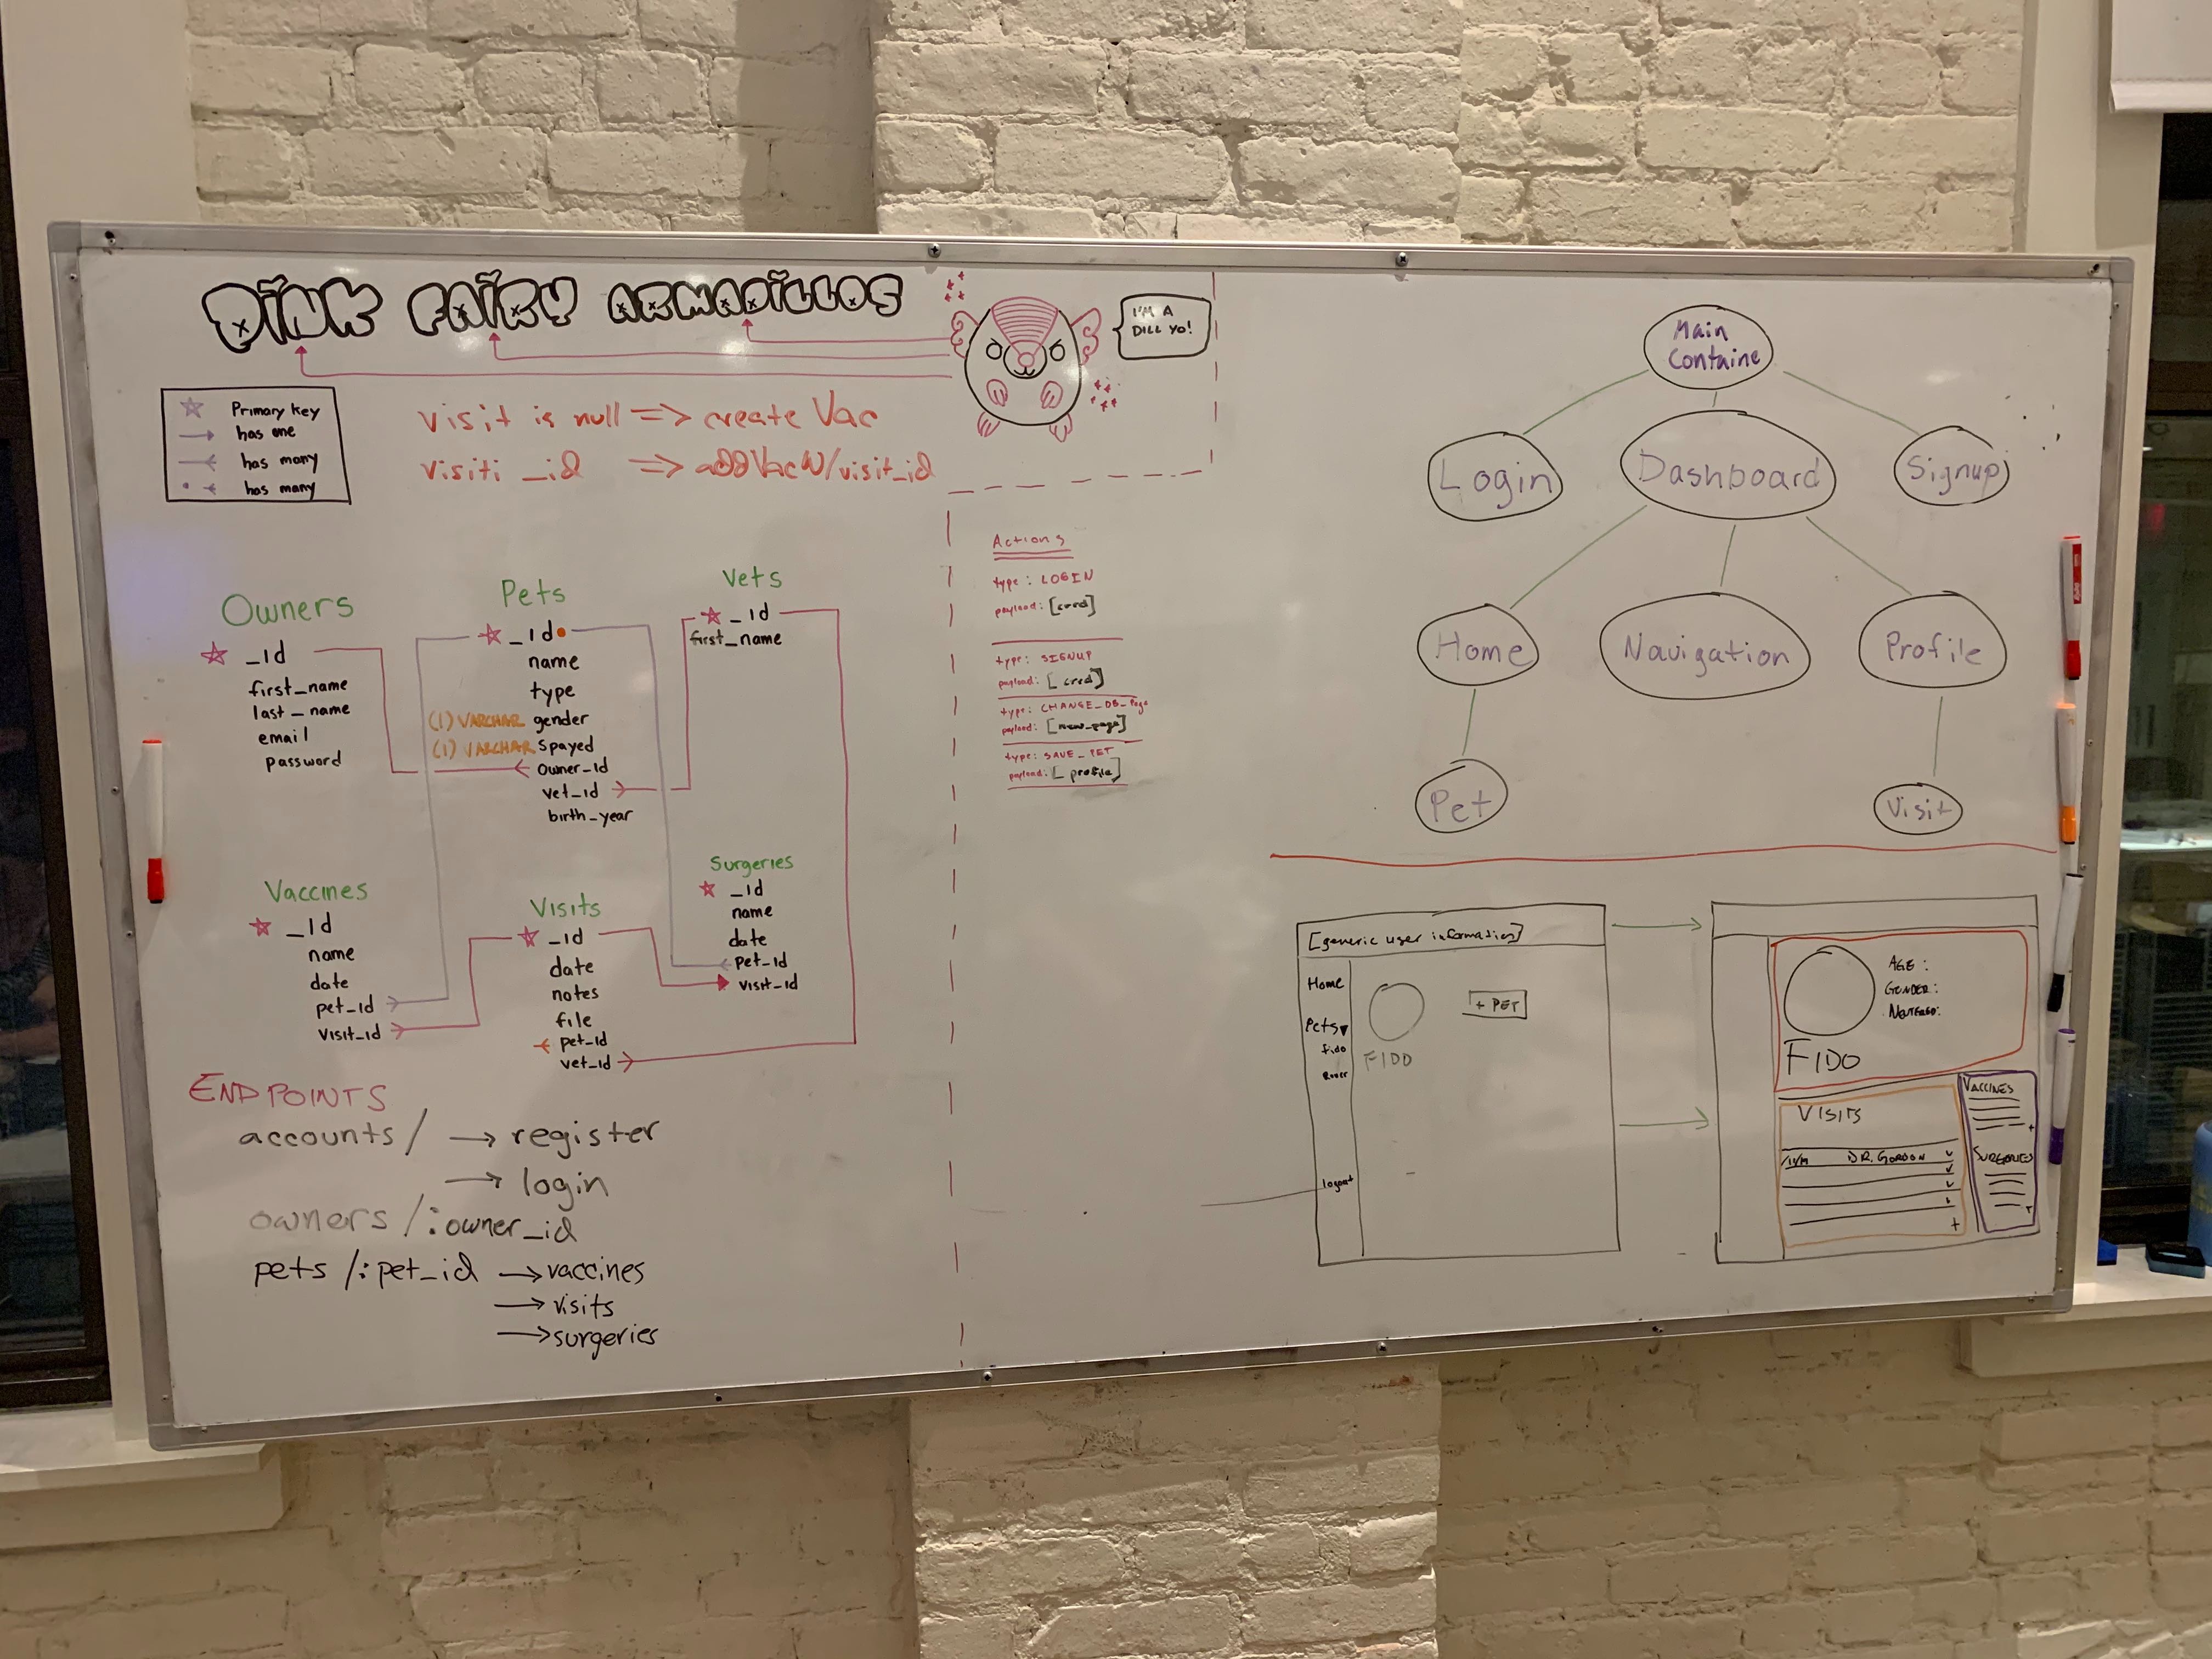 PINK FAIRY ARMADILLOS
I'M A
DILL YO!
Primary key
has one
has many
has many
visit is null => create Vac
visiti _id => addVacW/visit_id
Owners
_id
first_name
last_name
email
password
Pets
_id
name
type
(1) VARCHAR gender
(1) VARCHAR spayed
owner_id
vet_id
birth_year
Vets
_id
first_name
Vaccines
_id
name
date
pet_id
visit_id
Visits
_id
date
notes
file
pet_id
vet_id
Surgeries
_id
name
date
pet_id
visit_id
ENDPOINTS
accounts/ → register
→ login
owners/:owner_id
pets/:pet_id → vaccines
→ visits
→ surgeries
Actions
type: LOGIN
payload: [cred]
type: SIGNUP
payload: [cred]
type: CHANGE_DB_Page
payload: [new_page]
type: SAVE_PET
payload: [profile]
Main
Containe
Login
Dashboard
Signup
Home
Navigation
Profile
Pet
Visit
[generic user information]
Home
Pets▼
fido
logout
FIDO
+ PET
AGE:
GENDER:
NEUTERED:
FIDO
VISITS
DR. GORDON
+
VACCINES
+
SURGERIES
+